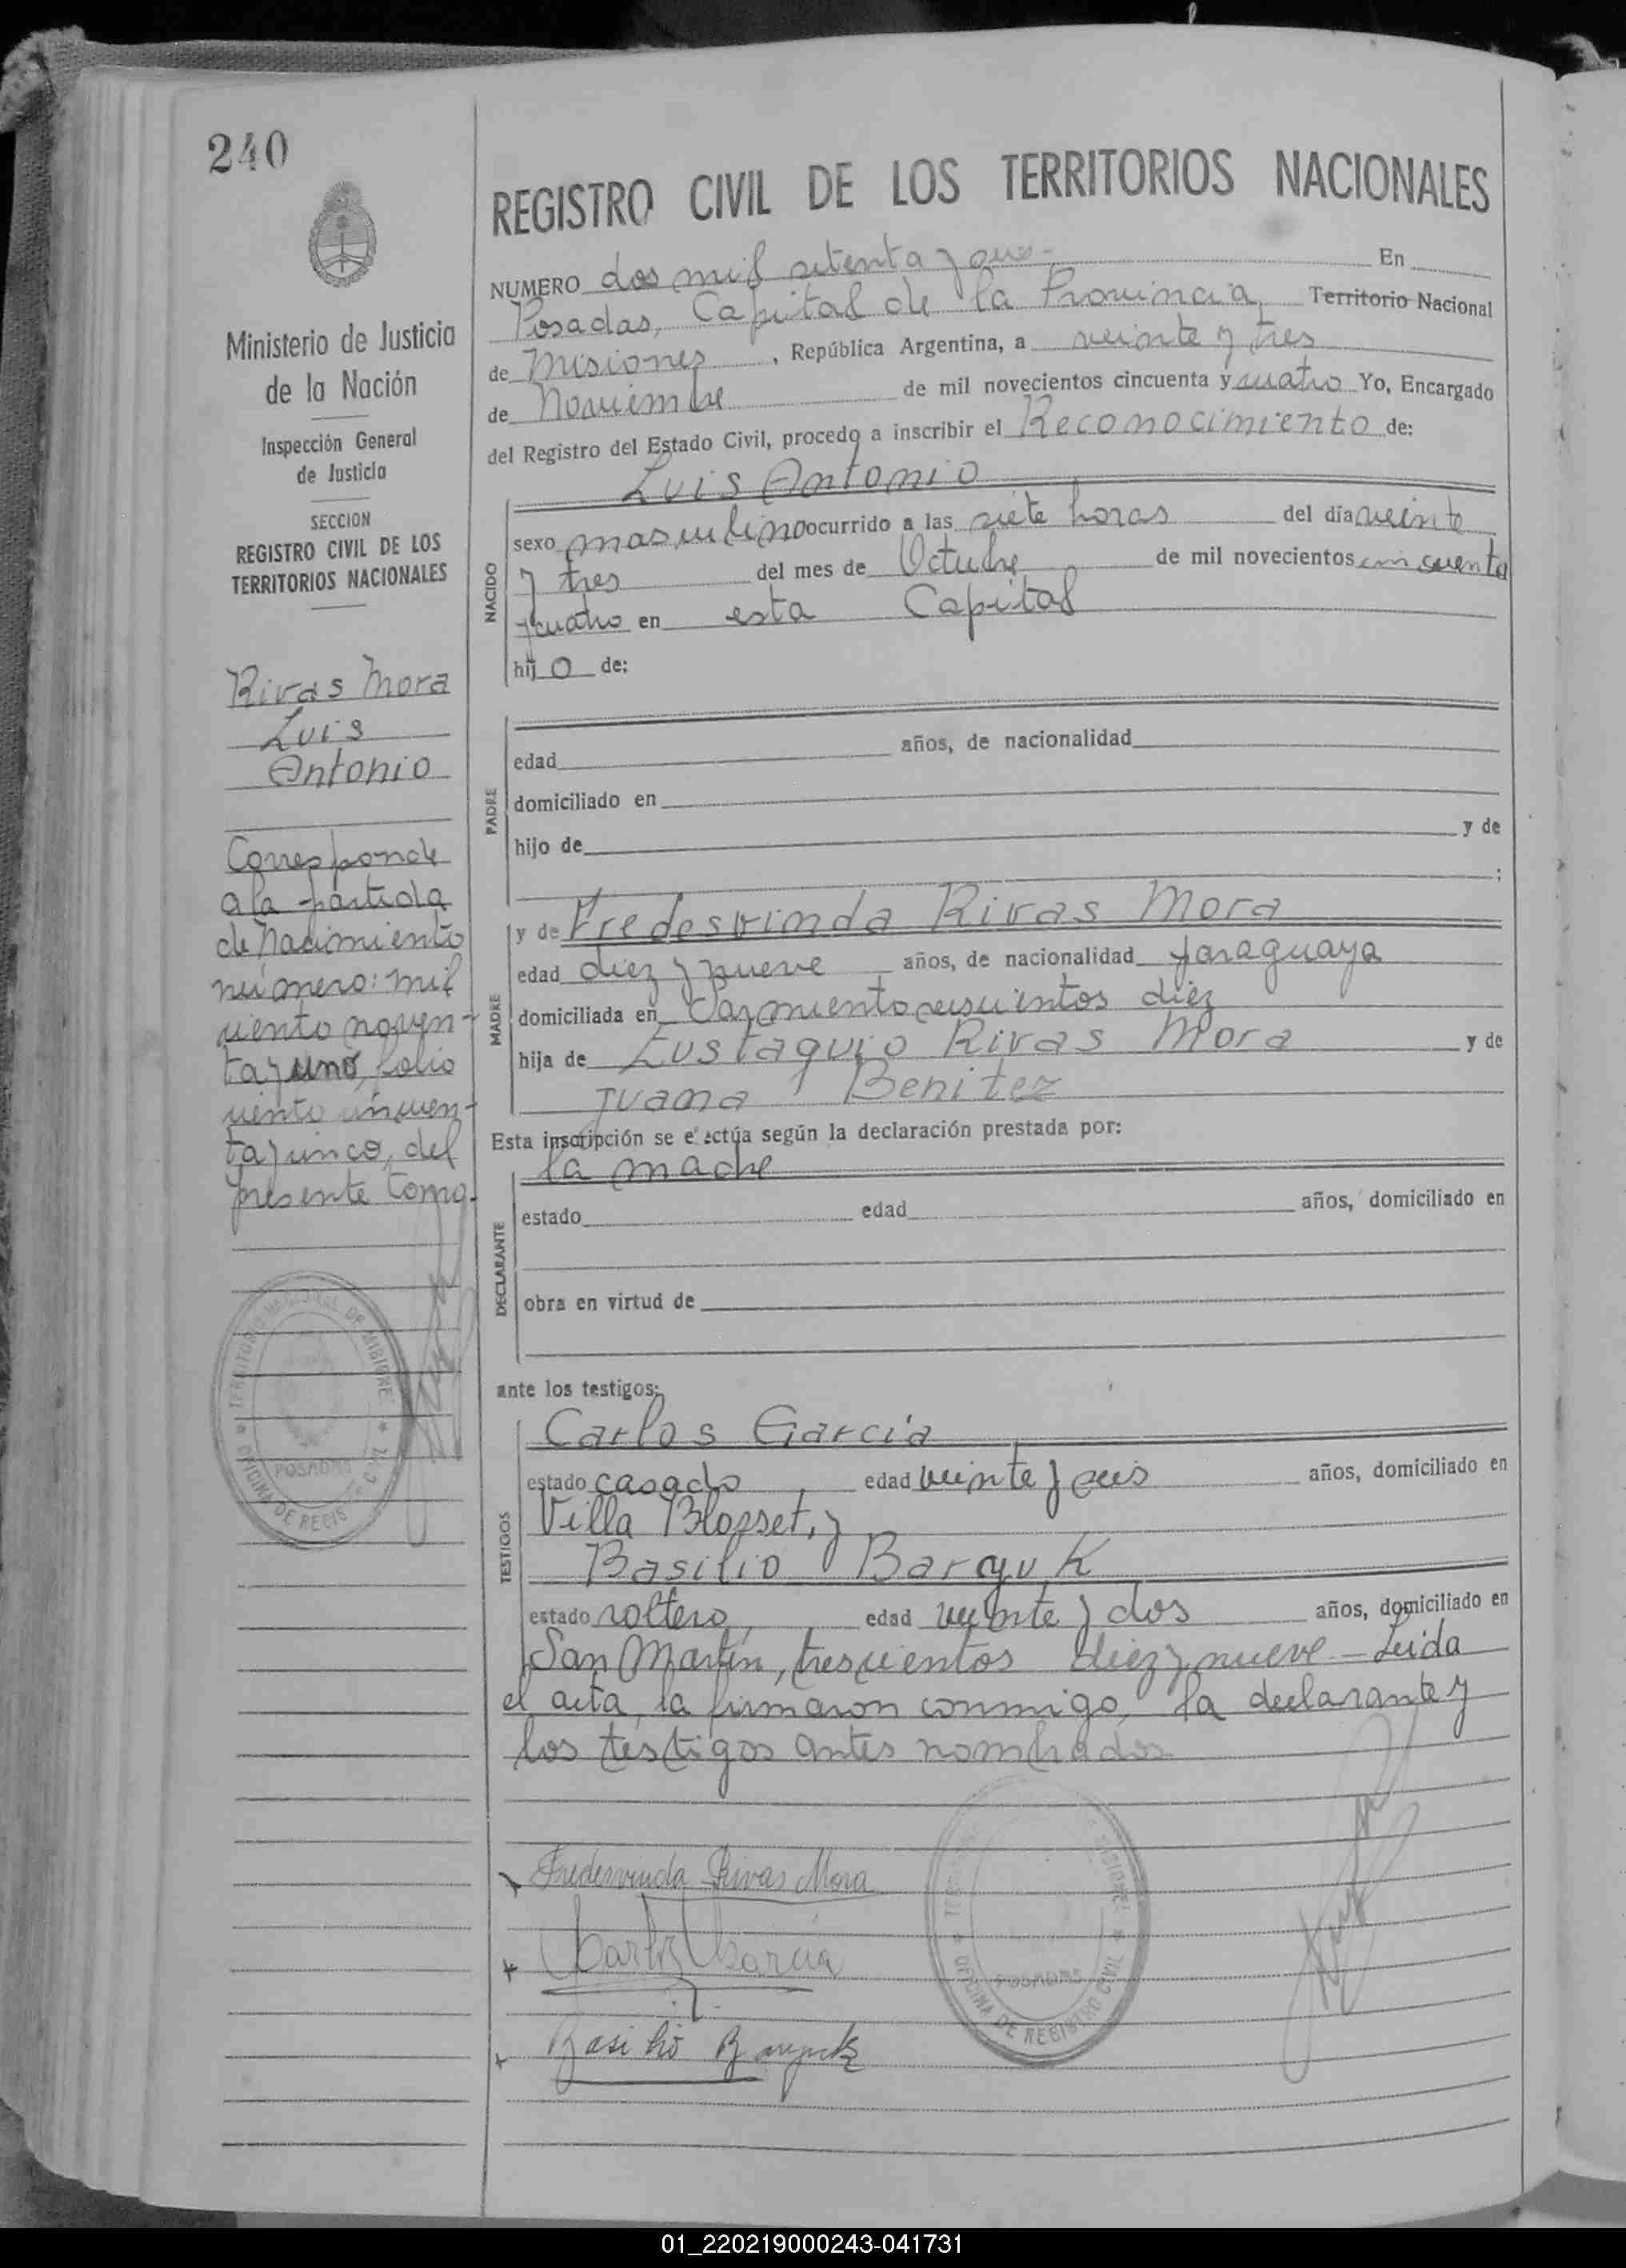 240
Ministerio de Justicia
de la Nación
Inspección General
de Justicia
SECCION
REGISTRO CIVIL DE LOS
TERRITORIOS NACIONALES
Rivas Mora
Luis
Antonio
Corresponde
a la partida
de nacimiento
número: mil
ciento noven-
ta y uno, folio
ciento cincuen-
ta y cinco, del
presente tomo.
TERRITORIO NACIONAL DE MISIONES
POSADAS
OFICINA DE REGISTRO CIVIL
REGISTRO CIVIL DE LOS TERRITORIOS NACIONALES
NUMERO dos mil setenta y seis - En
Posadas, Capital de la Provincia Territorio Nacional
de Misiones, República Argentina, a veinte y tres
de Noviembre de mil novecientos cincuenta y cuatro Yo, Encargado
del Registro del Estado Civil, procedo a inscribir el Reconocimiento de:
NACIDO
Luis Antonio
sexo masculino ocurrido a las siete horas del día veinte
y tres del mes de Octubre de mil novecientos cincuenta
y cuatro en esta Capital
hijo de:
PADRE
edad años, de nacionalidad
domiciliado en
hijo de y de
;
MADRE
y de Fredesvinda Rivas Mora
edad diez y nueve años, de nacionalidad paraguaya
domiciliada en Sarmiento seiscientos diez
hija de Eustaquio Rivas Mora y de
Juana Benitez
Esta inscripción se efectúa según la declaración prestada por:
DECLARANTE
la madre
estado edad años, domiciliado en
obra en virtud de
ante los testigos:
TESTIGOS
Carlos García
estado casado, edad veinte y seis años, domiciliado en
Villa Blosset, y
Basilio Barayuk
estado soltero, edad veinte y dos años, domiciliado en
San Martín, trescientos diez y nueve - Leida
el acta, la firmaron conmigo, la declarante y
los testigos antes nombrados
Fredesvinda Rivas Mora
Carlos García
Basilio
POSADAS
OFICINA DE REGISTRO CIVIL
01_220219000243-041731